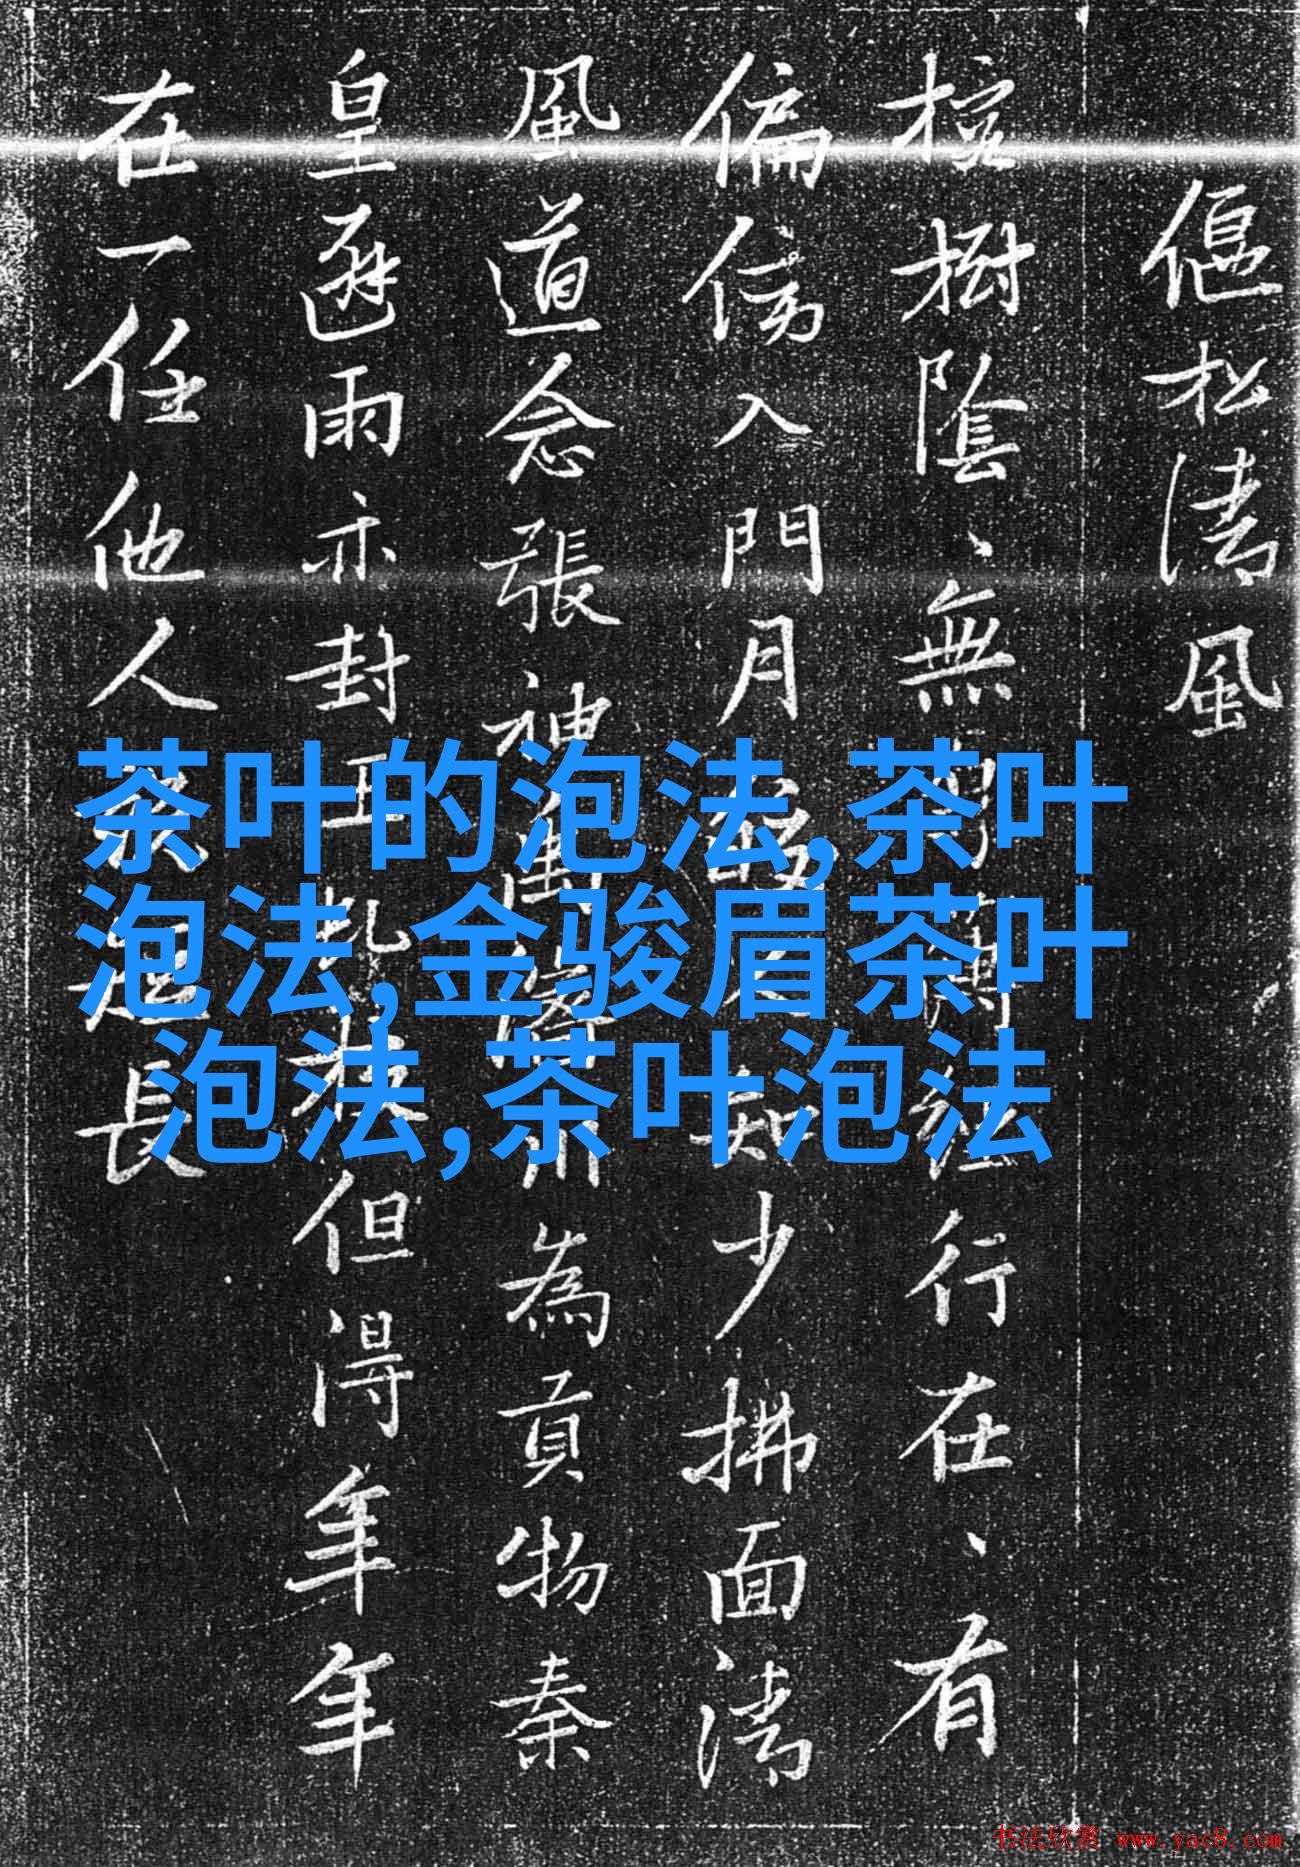 偃松清風
樹陰、無經行在、有
偏傍入門月知少拂面清
風道念張神為貢物秦
皇雨亦封但得年年
在一任他人是長
茶叶的泡法,茶叶
泡法,金骏眉茶叶
泡法,茶叶泡法
书法欣赏 www.yac8.com